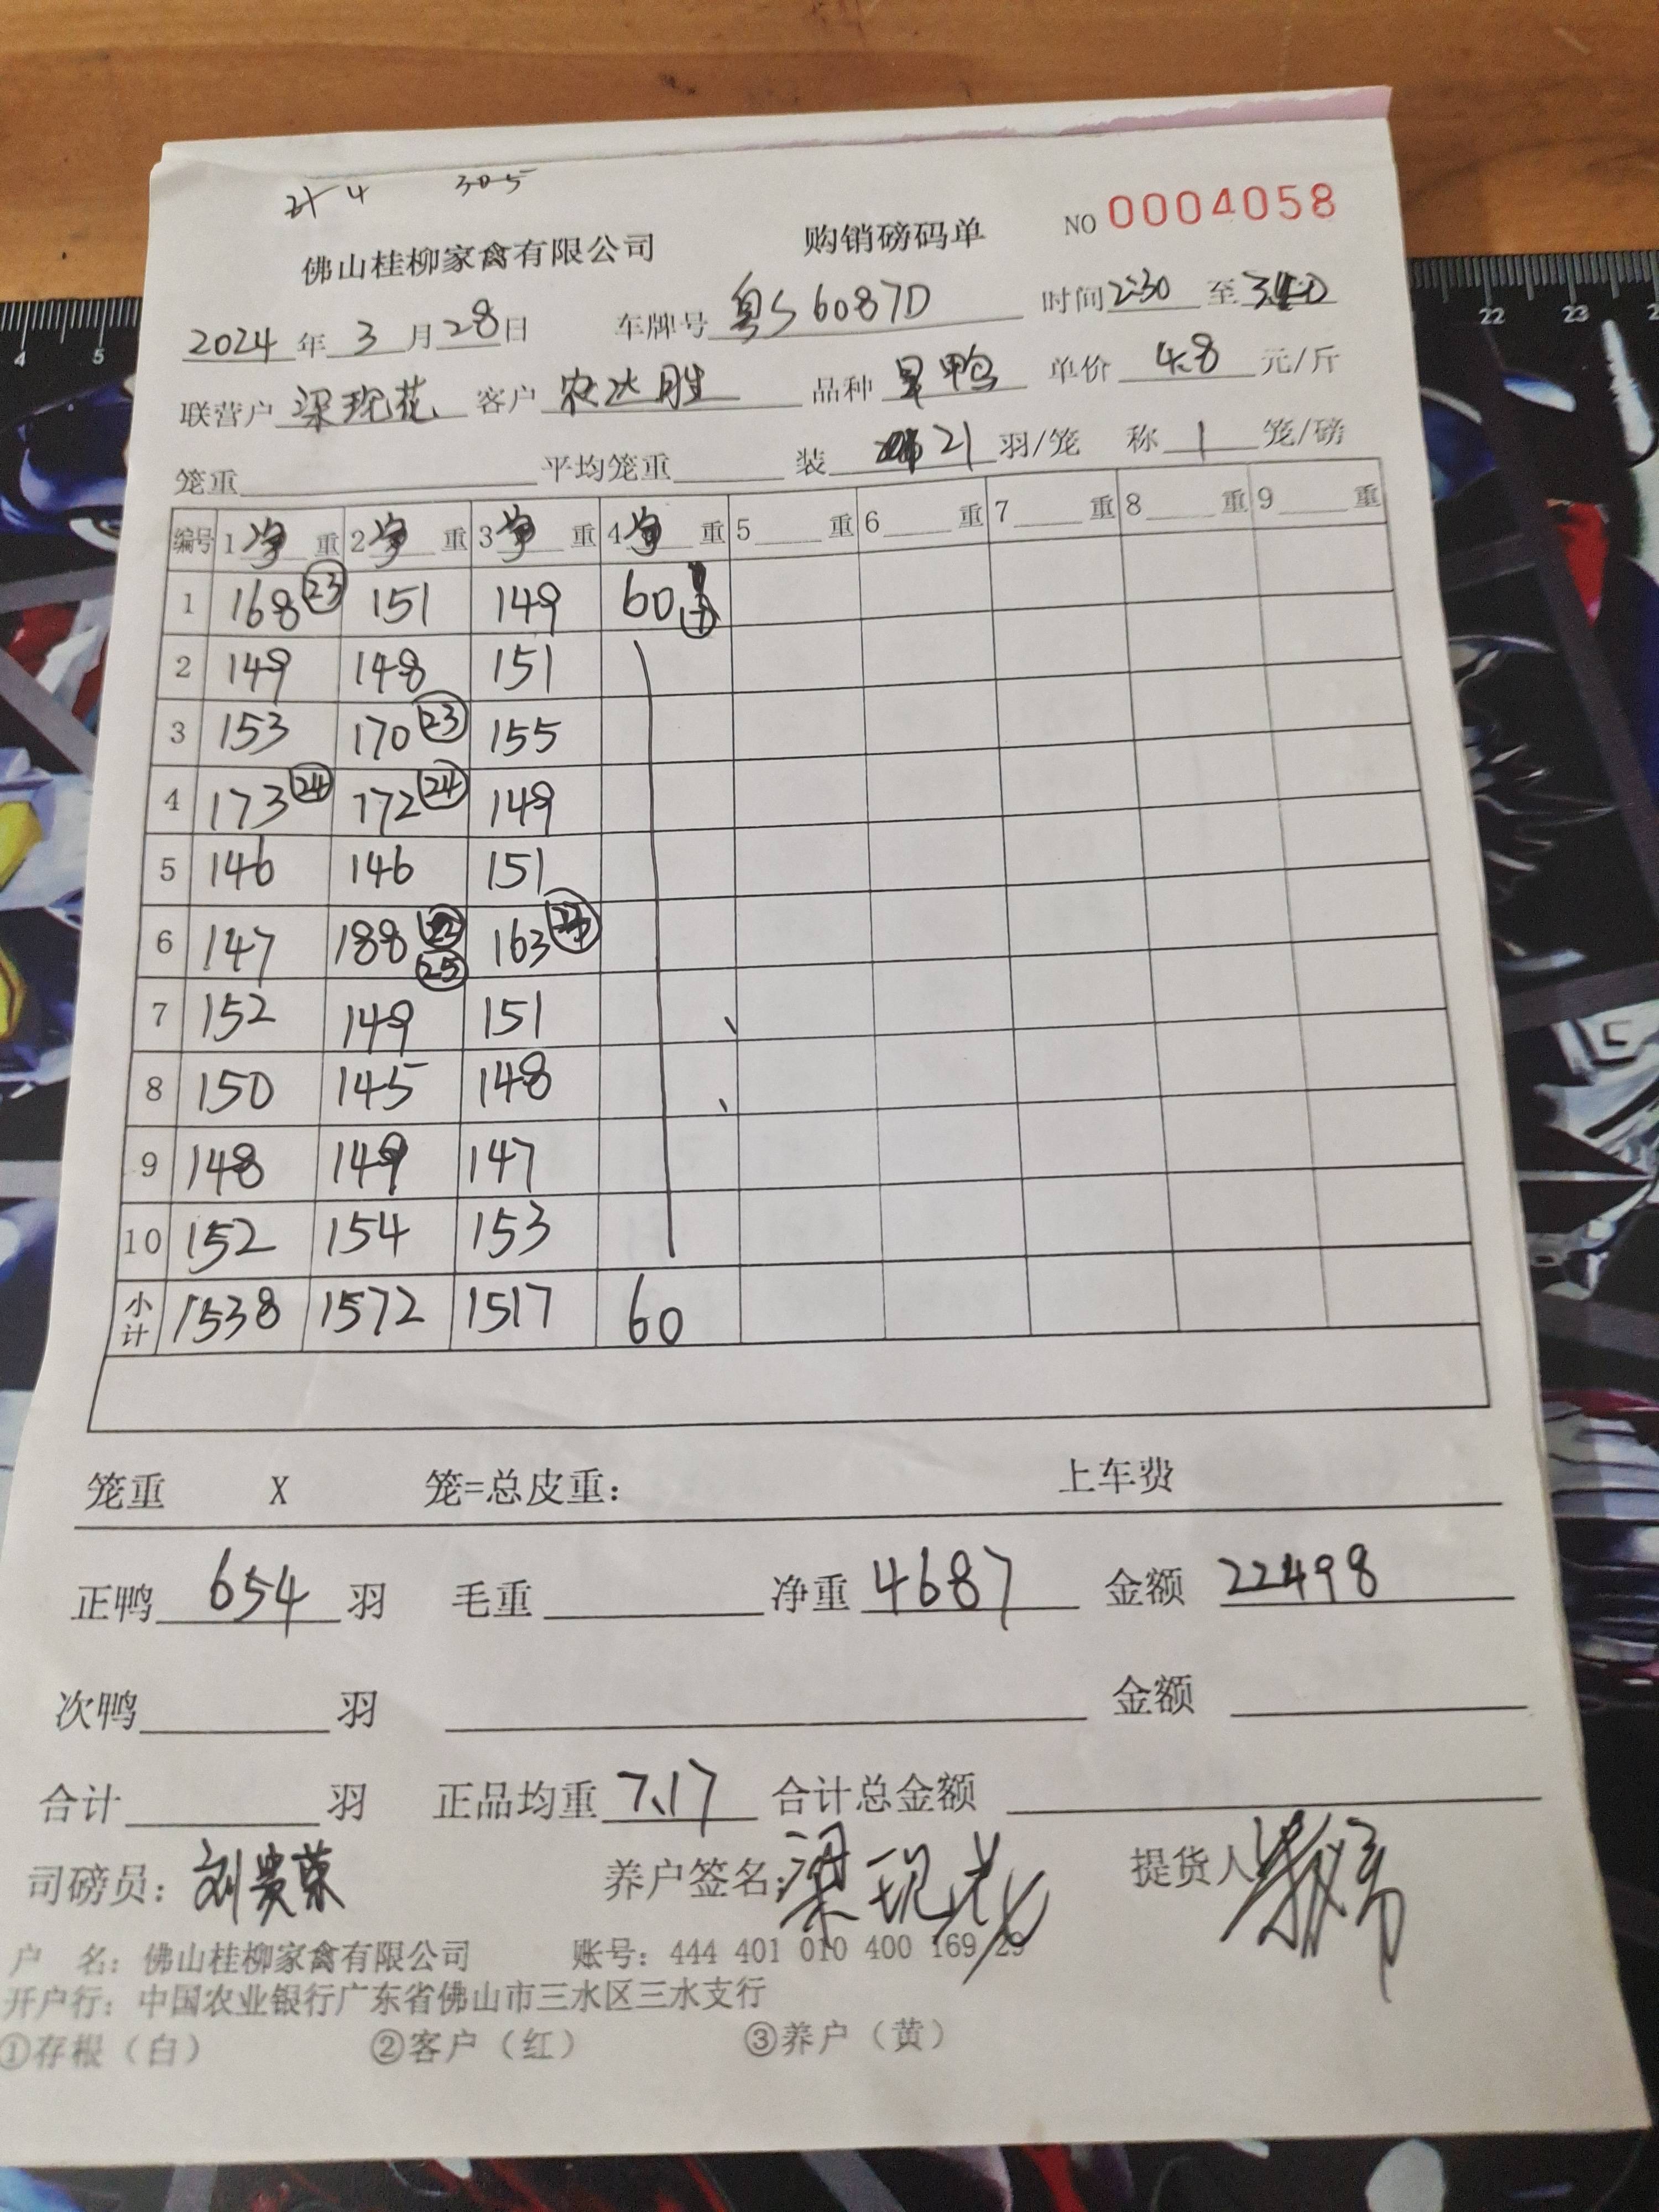 4 305
佛山桂柳家禽有限公司 购销磅码单 NO 0004058
2024年3月28日 车牌号 粤S6087D 时间 2:30 至 3:40
联营户 梁现花 客户 农达胜 品种 单价 4.8 元/斤
笼重 平均笼重 装 21 羽/笼 称 1 笼/磅
编号 1 净 重 2 净 重 3 净 重 4 净 重 5 重 6 重 7 重 8 重 9 重
1 168 23 151 149 60
2 149 148 151
3 153 170 23 155
4 173 24 172 24 149
5 146 146 151
6 147 188 25 163
7 152 149 151
8 150 145 148
9 148 149 147
10 152 154 153
小计 1538 1572 1517 60
笼重 X 笼=总皮重: 上车费
正鸭 654 羽 毛重 净重 4687 金额 22498
次鸭 羽 金额
合计 羽 正品均重 7.17 合计总金额
司磅员: 刘贵荣 养户签名: 梁现花 提货人
户 名: 佛山桂柳家禽有限公司 账号: 444 401 010 400 169 29
开户行: 中国农业银行广东省佛山市三水区三水支行
①存根（白） ②客户（红） ③养户（黄）